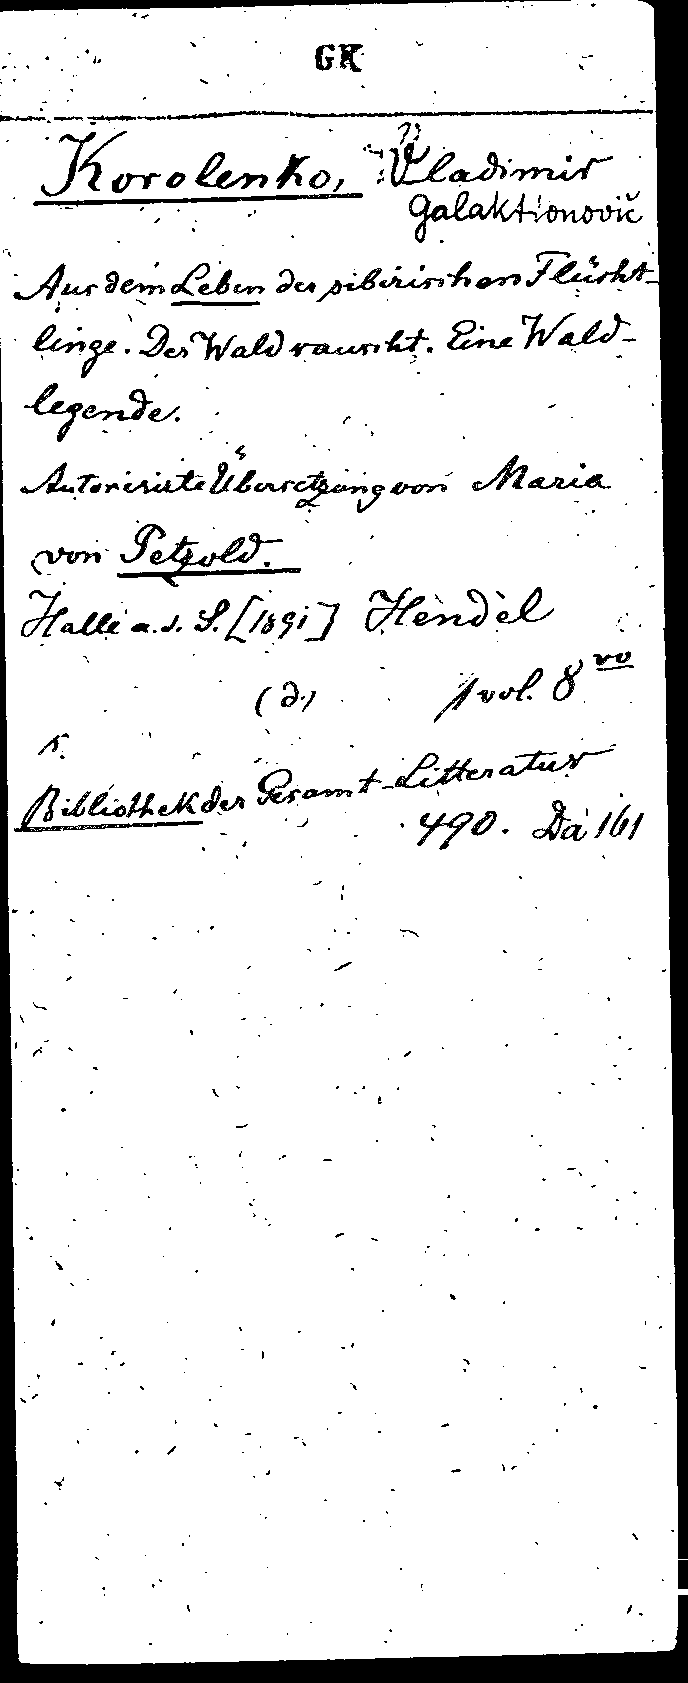 GK
Korolenko, Vladimir
Galaktionovič
Aus dem Leben der sibirischen Flücht-
linge. Der Wald rauscht. Eine Wald-
legende.
Autorisirte Übersetzung von Maria
von Petzold.
Halle a. d. S. [1891] Hendel
(d.) 1 vol. 8vo
Bibliothek der Gesamt-Litteratur
490. Da 161